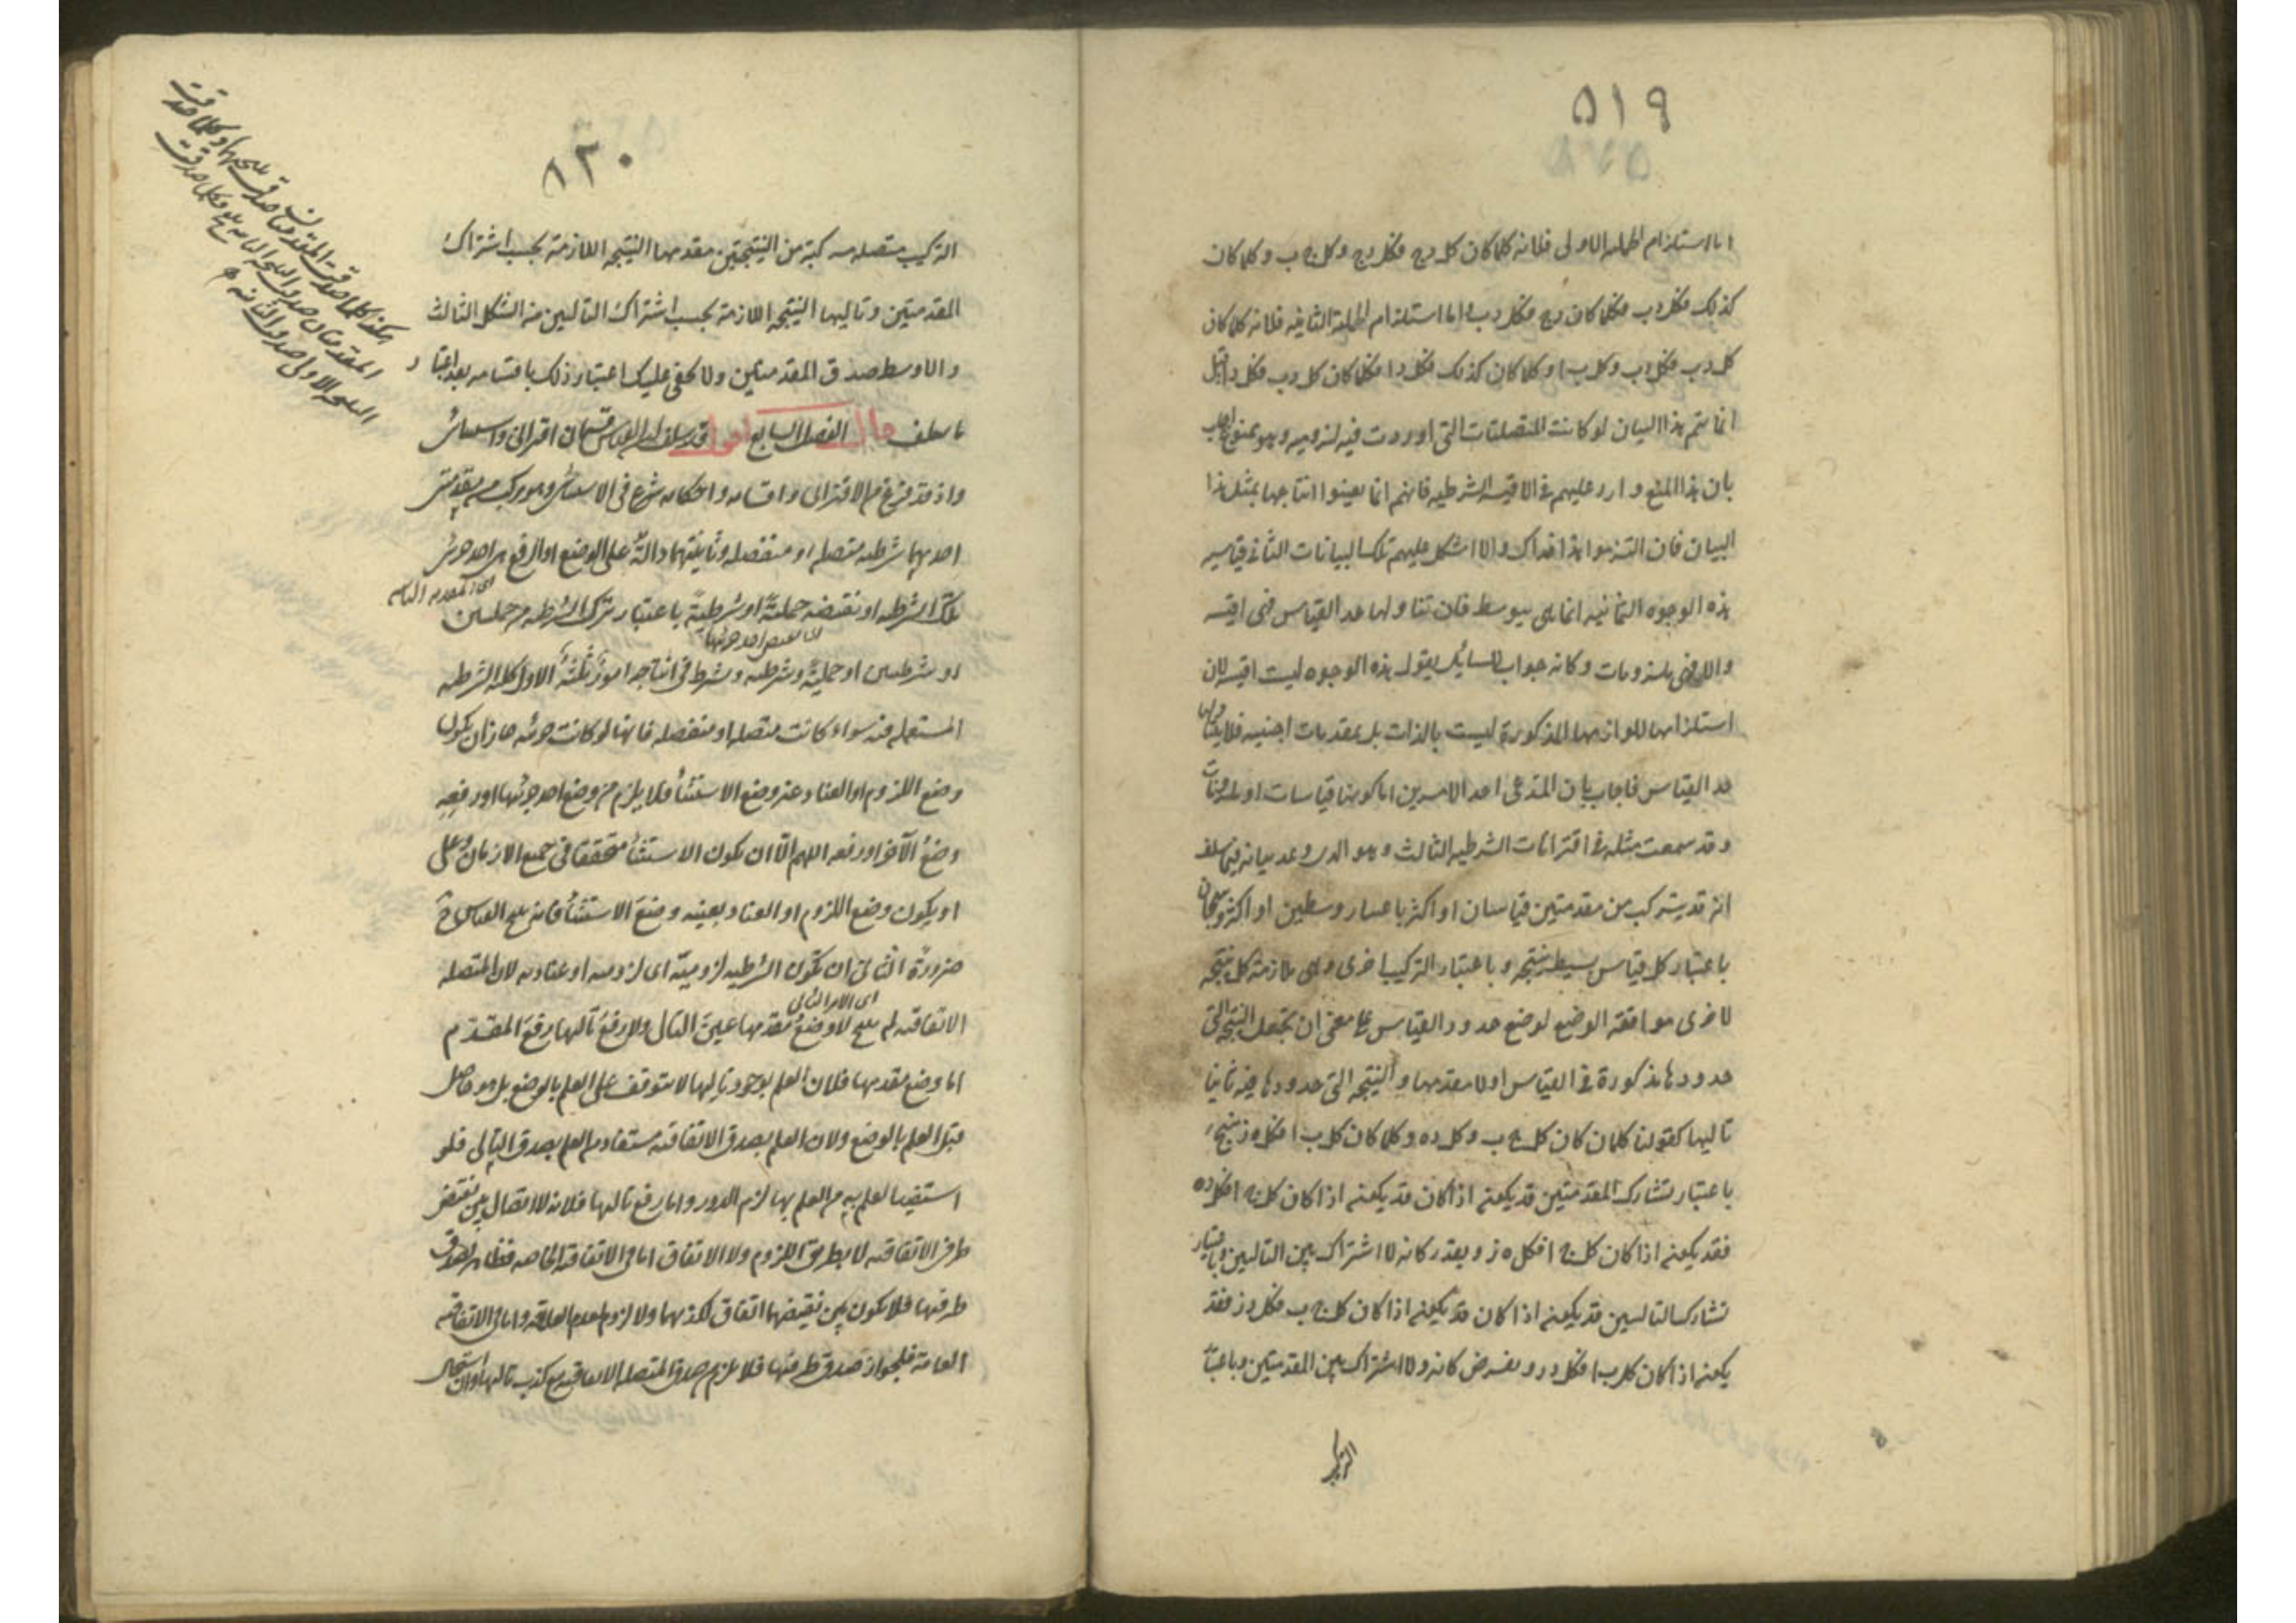 ٥١٩
اما استلزام الحملية الاولى فلانه كلما كان كل د ج فكل د ج وكل ج ب وكلما كان
كذلك فكل د ب فكلما كان د ج فكل د ب واما استلزام الحملية الثانية فلانه كلما كان
كل د ب فكل د ب وكل ب ا وكلما كان كذلك فكل د ا فكلما كان كل د ب فكل د ا قيل
انما يتم هذا البيان لو كانت المتصلات التى اوردت فيه لزومية وهو ممنوع اجيب
بان هذا المنع وارد عليهم فى الاقيسة الشرطية فانهم انما يعينوا انتاجها بمثل هذا
البيان فان التزموا هذا فذاك والا اشكل عليهم تلك البيانات الثانى قياسية
هذه الوجوه الثمانية انما هى بوسط فان تناولها حد القياس فهى اقيسة
والا فهى ملزومات وكانه جواب لسائل يقول هذه الوجوه ليست اقيسة لان
استلزامها للوازمها المذكورة ليست بالذات بل بمقدمات اجنبية فلا يتناولها
حد القياس فاجاب بان المدعى احد الامرين اما كونها قياسات او ملزومات
وقد سمعت مثله فى اقترانات الشرطية الثالث وهو الذى وعد بيانه فيما سلف
انه قد يتركب من مقدمتين قياسان او اكثر باعتبار وسطين او اكثر وينتجان
باعتبار كل قياس بسيط نتيجة وباعتبار التركيب اخرى وهى ملازمة كل نتيجة
لاخرى موافقة الوضع لوضع حدود القياس على معنى ان تجعل النتيجة التى
حدودها مذكورة فى القياس اولا مقدمها والنتيجة التى حدودها فيه ثانيا
تاليها كقولنا كلما كان كل ج ب وكل د ه وكلما كان كل ب ا فكل ه ز ينتج
باعتبار تشارك المقدمتين قد يكون اذا كان قد يكون اذا كان كل ج ا فكل د ه
فقد يكون اذا كان كل ج ا فكل ه ز وبقدر كانه لا اشتراك بين التاليين وباعتبار
تشارك التاليين قد يكون اذا كان قد يكون اذا كان كل ج ب فكل د ز فقد
يكون اذا كان كل ب ا فكل د ز ويفرض كانه ولا اشتراك بين المقدمتين وباعتبار
التركيب
٥٢٠
التركيب متصلة مركبة من النتيجتين مقدمها النتيجة اللازمة بحسب اشتراك
المقدمتين وتاليها النتيجة اللازمة بحسب اشتراك التاليين من الشكل الثالث
والاوسط صدق المقدمتين ولا يخفى عليك اعتبار ذلك باقسامه بعد اعتبار
ما سلف قال الفصل السابع اقول قد سلف ان القياس قسمان اقترانى واستثنائى
واذ قد فرغ من الاقترانى واقسامه واحكامه شرع فى الاستثنائى وهو مركب من مقدمتين
احديهما شرطية متصلة او منفصلة وثانيتهما دالة على الوضع او الرفع لاحد جزئى
تلك الشرطية او نقيضه حملية او شرطية باعتبار تركب الشرطية من حمليتين
او شرطيتين او حملية وشرطية وشرط فى انتاجه امور ثلثة الاول كلية الشرطية
المستعملة فيه سواء كانت متصلة او منفصلة فانها لو كانت جزئية جاز ان يكون
وضع اللزوم او العناد غير وضع الاستثناء فلا يلزم من وضع احد جزئيها او رفعه
وضع الآخر او رفعه اللهم الا ان يكون الاستثناء متحققا فى جميع الازمان وعلى
او يكون وضع اللزوم او العناد بعينه وضع الاستثناء فانه ينتج القياس ح
ضرورة الثانى ان تكون الشرطية لزومية اى لزومية او عنادية لان المتصلة
اى الامر الثانى
الاتفاقية لم ينتج لا وضع مقدمها عين التالى ولا رفع تاليها رفع المقدم
اما وضع مقدمها فلان العلم بوجود تاليها لا يتوقف على العلم بالوضع بل هو حاصل
قبل العلم بالوضع ولان العلم بصدق الاتفاقية مستفاد من العلم بصدق التالى فلو
استفيد العلم به من العلم بها لزم الدور واما رفع تاليها فلانه لا اتصال بين نقيض
طرفى الاتفاقية لا بطريق اللزوم ولا الاتفاق اما فى الاتفاقية الخاصة فظاهر لصدق
طرفيها فلا يكون بين نقيضيها اتفاق لكذبهما ولا لزوم لعدم العلاقة واما فى الاتفاقية
العامة فلجواز صدق طرفيها فلا يلزم صدق المتصلة الاتفاقية مع كذب تاليها وان استحال